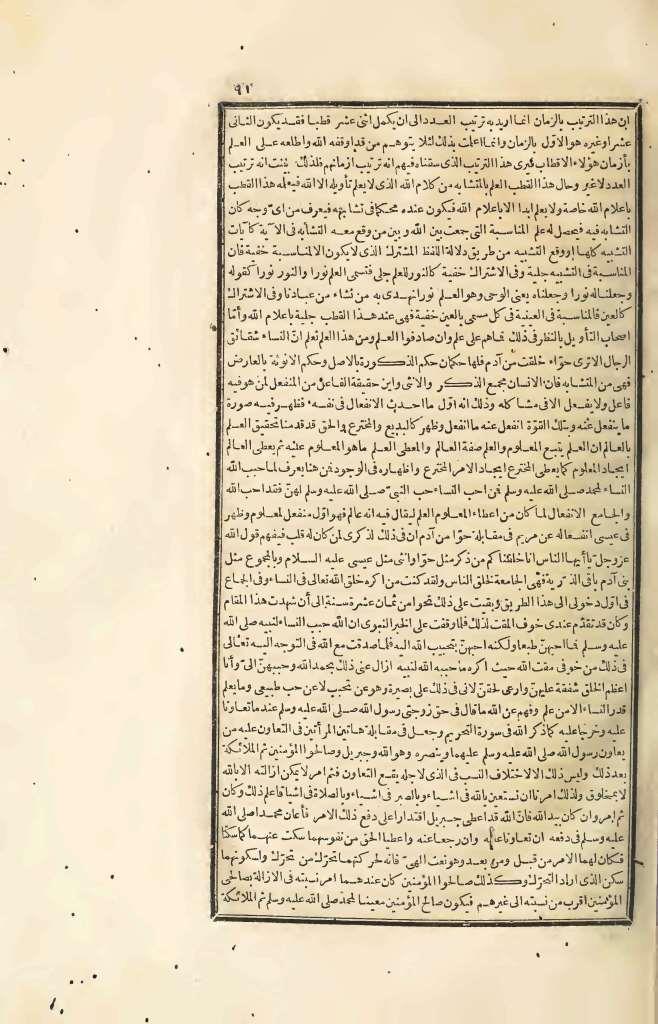 ٩٢
ان هذا الترتيب بالزمان انما اريد به ترتيب العدد الى ان يكمل اثنى عشر قطبا فقد يكون الثانى
عشر او غيره هو الاول بالزمان وانما اعلمت بذلك لئلا يتوهم من قد اوقفه الله واطلعه على العلم
بأزمان هؤلاء الاقطاب فيرى هذا الترتيب الذى سقناه فيهم انه ترتيب ازمانهم فلذلك بينت انه ترتيب
العدد لا غير وحال هذا القطب العلم بالمتشابه من كلام الله الذى لا يعلم تأويله الا الله فيعلمه هذا القطب
باعلام الله خاصة ولا يعلم ابدا الا باعلام الله فيكون عنده محكما فى تشابهه فيعرف من اى وجه كان
التشابه فيه فيحصل له علم المناسبة التى جمعت بين الله وبين من وقع معه التشابه فى الآية كآيات
التشبيه كلها او وقع التشبيه من طريق دلالة اللفظ المشترك الذى لا يكون الا لمناسبة خفية فان
المناسبة فى التشبيه جلية وفى الاشتراك خفية كالنور للعلم جلى فتسمى العلم نورا والنور نورا كقوله
وجعلنا له نورا وجعلناه يعنى الوحى وهو العلم نورا نهدى به من نشاء من عبادنا وفى الاشتراك
كالعين فالمناسبة فى العينية فى كل مسمى بالعين خفية فهى عند هذا القطب جلية باعلام الله وأما
اصحاب التأويل بالنظر فى ذلك فما هم على علم وان صادفوا العلم ومن هذا العلم تعلم انّ النساء شقائق
الرجال الاترى حوّاء خلقت من آدم فلها حكمان حكم الذكورة بالاصل وحكم الانوثة بالعارض
فهى من المتشابه فان الانسان مجمع الذكر والانثى واين حقيقة الفاعل من المنفعل لمن هو فيه
فاعل ولا يفعل الا فى مشاكله وذلك انه اول ما احدث الانفعال فى نفسه فظهر فيه صورة
ما ينفعل عنه وبتلك القوّة انفعل عنه ما انفعل وظهر كالبديع والمخترع والحق قد قدمنا بتحقيق العلم
بالعالم ان العلم يتبع المعلوم والعلم صفة العالم والمعطى العلم ما هو المعلوم عليه ثم يعطى العالم
ايجاد المعلوم كما يعطى المخترع ايجاد الامر المخترع واظهاره فى الوجود فمن هنا يعرف لما حبب الله
النساء لمحمد صلى الله عليه وسلم فمن احب النساء حب النبىّ صلى الله عليه وسلم لهنّ فقد احب الله
والجامع الانفعال لما كان من اعطاء المعلوم العلم ليقال فيه انه عالم فهو اول منفعل لمعلوم وظهر
فى عيسى انفعاله عن مريم فى مقابلة حوّا من آدم ان فى ذلك لذكرى لمن كان له قلب فيفهم قول الله
عز وجل يا أيها الناس انا خلقناكم من ذكر مثل حوّا وانثى مثل عيسى عليه السلام وبالمجموع مثل
بنى آدم باقى الذرية فهى الجامعة لخلق الناس ولقد كنت من اكره خلق الله تعالى فى النساء وفى الجماع
فى اول دخولى الى هذا الطريق وبقيت على ذلك نحوا من ثمان عشرة سنة الى أن شهدت هذا المقام
وكان قد تقدّم عندى خوف المقت لذلك فلما وقفت على الخبر النبوى ان الله حبب النساء لنبيه صلى الله
عليه وسلم فما احبهنّ طبعا ولكنه احبهنّ بتحبيب الله اليه فلما صدقت مع الله فى التوجه اليه تعالى
فى ذلك من خوفى مقت الله حيث اكره ما حببه الله لنبيه ازال عنى ذلك بحمد الله وحببهنّ الىّ وأنا
اعظم الخلق شفقة عليهنّ وارعى لحقهنّ لانى فى ذلك على بصيرة وهو عن تحبب لا عن حب طبيعى وما يعلم
قدر النساء الا من علم وفهم عن الله ما قال فى حق زوجتى رسول الله صلى الله عليه وسلم عندما تعاونا
عليه وخرجا عليه كما ذكر الله فى سورة التحريم وجعل فى مقابلة هاتين المرأتين فى التعاون عليه من
يعاون رسول الله صلى الله عليه وسلم عليهما وينصره وهو الله وجبريل وصالحوا المؤمنين ثم الملائكة
بعد ذلك وليس ذلك الا لاختلاف السبب فى الذى لاجله يقع التعاون فثم امر لا يمكن ازالته الا بالله
لا بمخلوق ولذلك امرنا ان نستعين بالله فى اشياء وبالصبر فى اشياء وبالصلاة فى اشياء فاعلم ذلك وكان
ثم امر وان كان بيد الله فانّ الله قد اعطى جبريل اقتدارا على دفع ذلك الامر فأعان محمدا صلى الله
عليه وسلم فى دفعه ان تعاونا عليه وان رجعا عنه واعطيا الحق من نفوسهما سكت عنهما كما سكتا
فكان لهما الامر من قبل ومن بعد وهو نعت الهىّ فانه لحركتهما تحرّك من تحرّك ولسكونهما
سكن الذى اراد التحرّك وكذلك صالحوا المؤمنين كان عندهما امر نسبته فى الازالة بصالحى
المؤمنين اقرب من نسبته الى غيرهم فيكون صالح المؤمنين معينا لمحمد صلى الله عليه وسلم ثم الملائكة